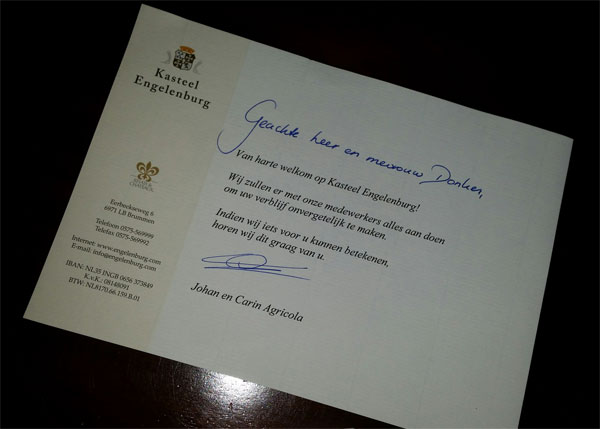 Kasteel
Engelenburg
Eerbeekseweg 6
6971 LB Brummen
Telefoon 0575-569999
Telefax 0575-569992
Internet: www.engelenburg.com
E-mail: info@engelenburg.com
IBAN: NL35 INGB 0656 375849
K.v.K.: 08148091
BTW: NL8170.66.159.B.01
Geachte heer en mevrouw Donker,
Van harte welkom op Kasteel Engelenburg!
Wij zullen er met onze medewerkers alles aan doen
om uw verblijf onvergetelijk te maken.
Indien wij iets voor u kunnen betekenen,
horen wij dit graag van u.
Johan en Carin Agricola